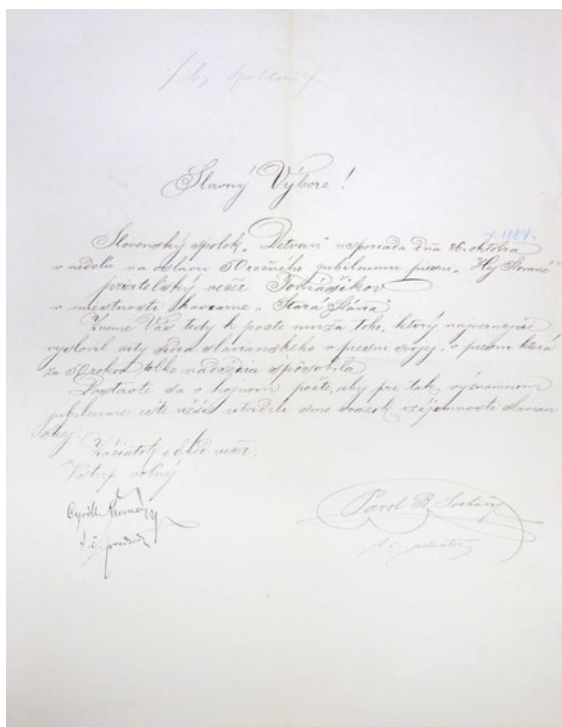 Slavný Výbore!
Slovenský spolok „Detvan" usporiada dňa 26. oktobra
r. 1884.
v nedelu na oslavu 50 ročného jubileuma piesni „Hej Slované"
priatelský večer Tomášikov
v miestnosti kaviarne „Stará Slávia"
Zveme Vás tedy k pocte muža toho, ktorý najvernejšie
vyslovil city ľudu slávianskeho v piesni svojej, o piesni ktorá
za 50 rokov tolko nadšenia spôsobila
Dostavte sa v hojnom počte, aby pri tak významnom
jubileume ešte užšie utvrdili sme sväzok vzájomnosti slovan
skej.
Začiatok o 8 hod večer.
Vstup volný
Cyrill
Pavol Socháň
t. č. t. č. jednateľ